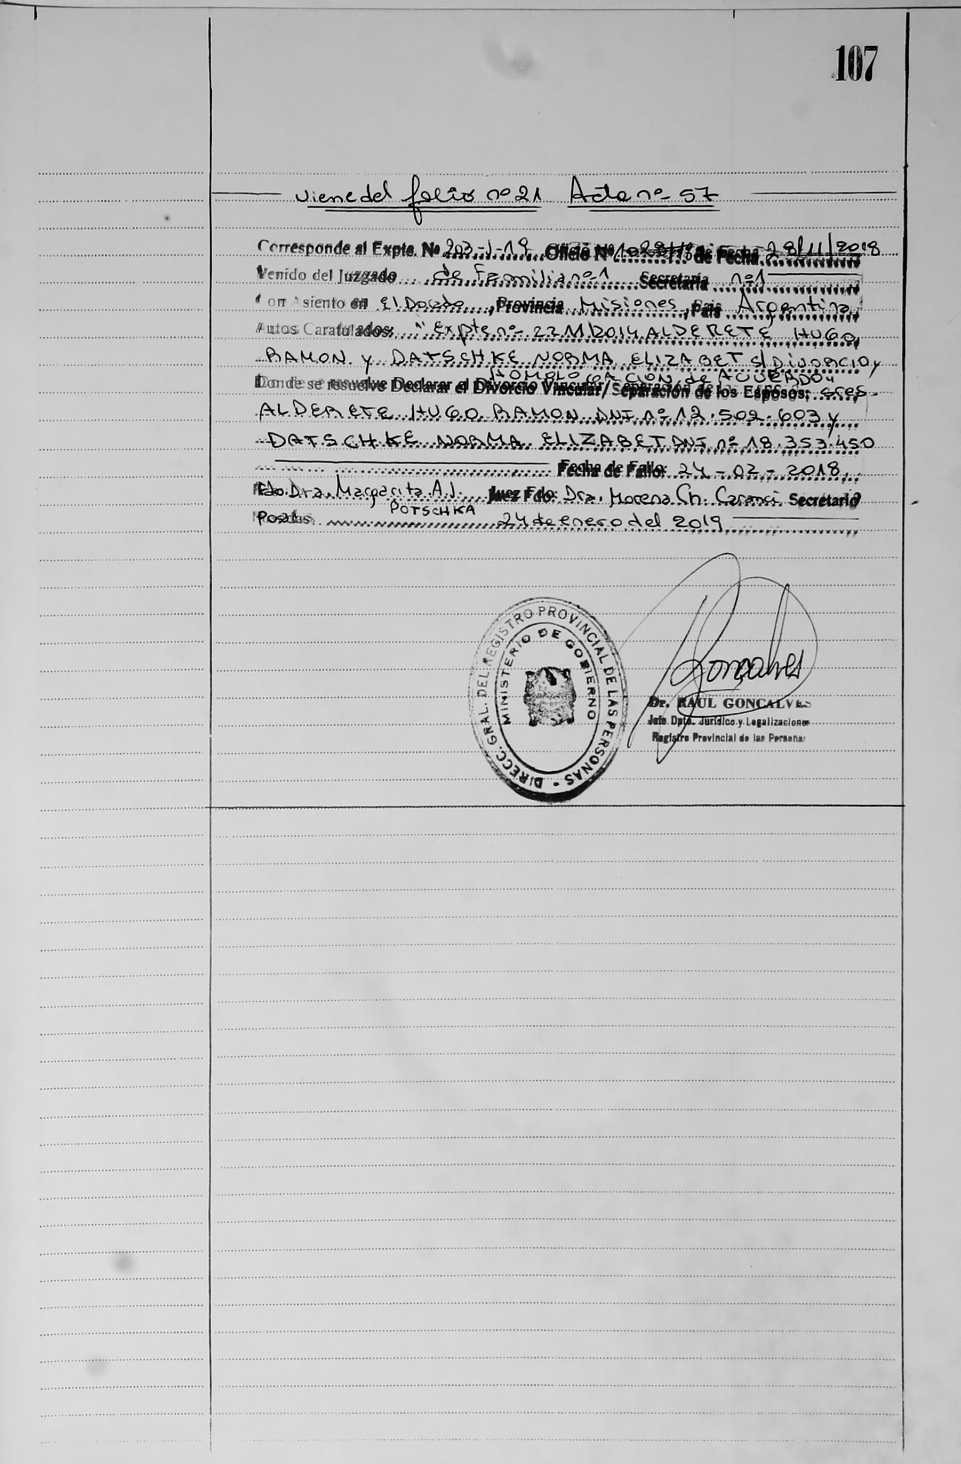 107
Viene del folio nº 21 Acta nº 57
Corresponde al Expte. Nº 203-J-19 Oficio Nº de Fecha 28/11/2018
Venido del Juzgado de Familia nº 1 Secretaría nº 1
con Asiento en El Dorado, Provincia Misiones, Pais Argentina
Autos Caratulados: "Expte nº 2211/2014 ALDERETE HUGO
RAMON y DATSCHKE NORMA ELIZABET s/ Divorcio y
HOMOLOGACION de ACUERDO"
Donde se resuelve Declarar el Divorcio Vincular/Separación de los Esposos: eres.
ALDERETE HUGO RAMON DNI nº 12.502.603 y
DATSCHKE NORMA ELIZABET DNI nº 18.353.450
Fecha de Fallo: 24-02-2018
Fdo. Dra. Margarita A.J. Juez Fdo: Dra. Morena Ch. Secretario
POTSCHKA
Posadas 24 de enero del 2019
DIRECC. GRAL. DEL REGISTRO PROVINCIAL DE LAS PERSONAS -
MINISTERIO DE GOBIERNO
Goncalves
Dr. RAUL GONCALVES
Jefe Dpto. Jurídico y Legalizaciones
Registro Provincial de las Personas